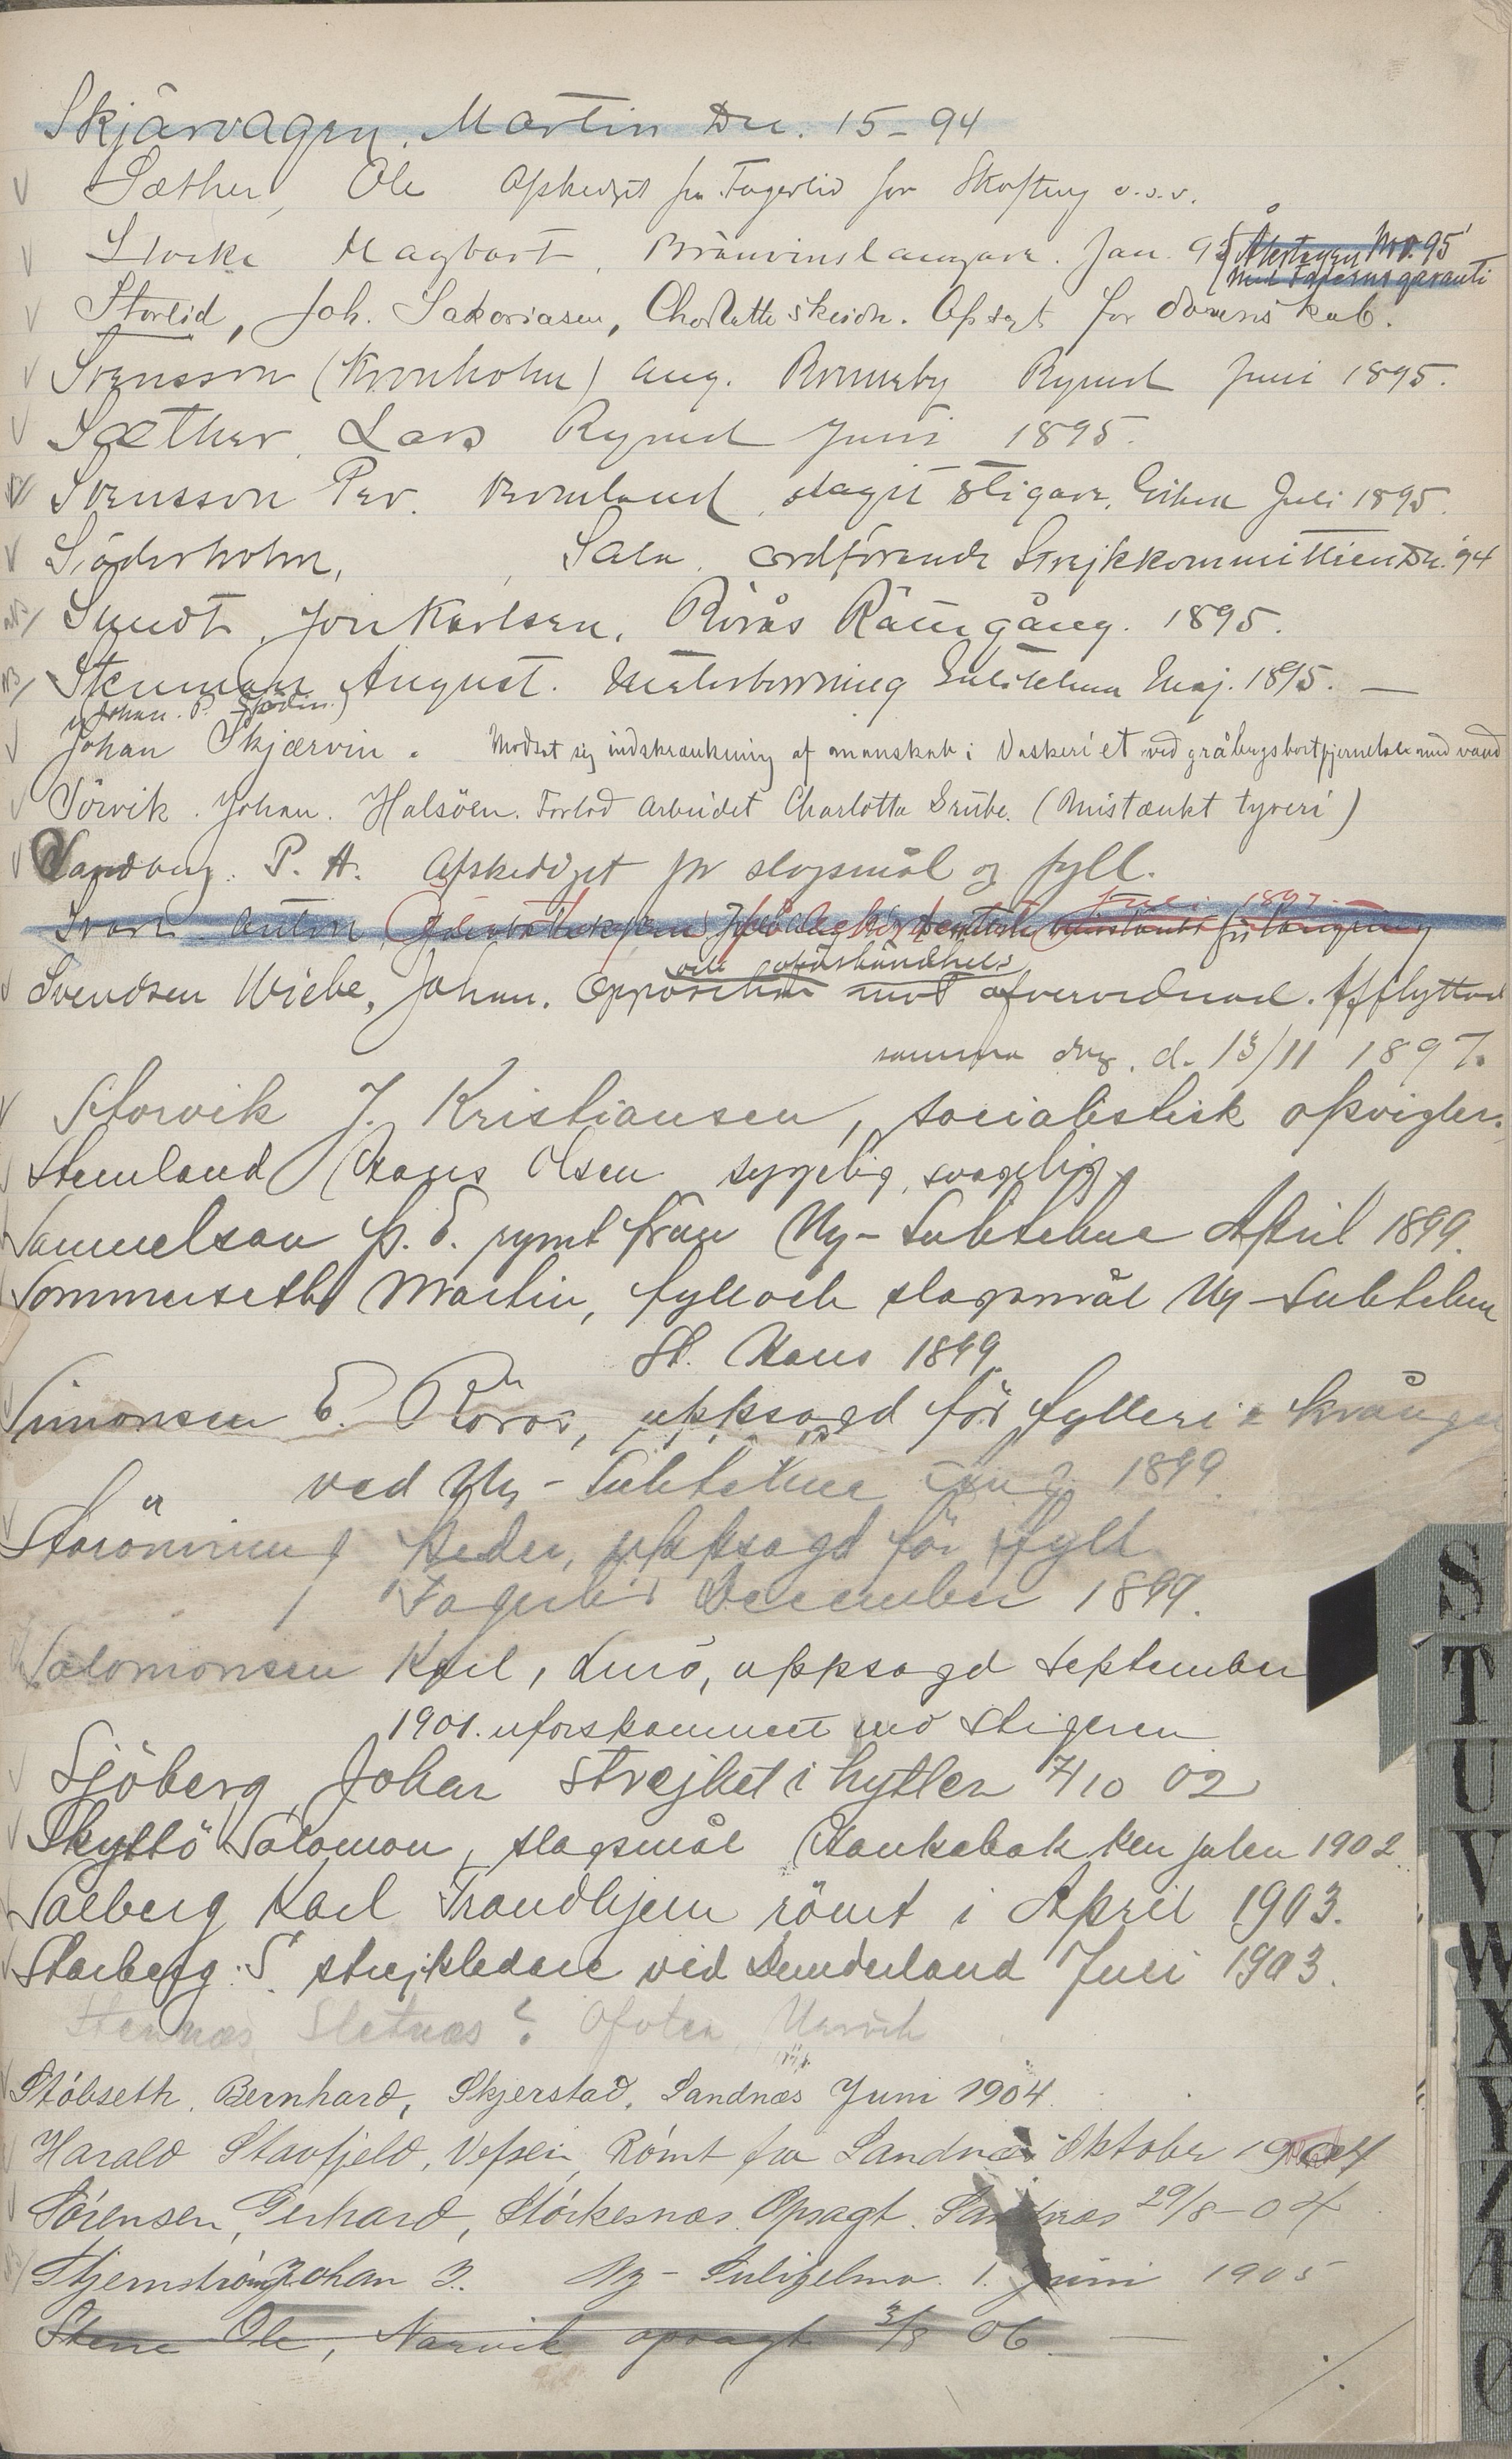 Skjärvagen, Martin Dec. 15-94
V Sæther, Ole Afskediget fra Fagerlid for Skoftning o.s.v.
V Storke Magbart, Brännvinslangare. Jan. 95 Återtagen Nov. 95
med Faderns garanti
V Storlid, Joh. Sakariasen, Charlotte skeidn. Opsagt for dovenskab.
V Svensson (Kronholm) Aug. Ronneby Rymd Juni 1895.
V Sæther, Lars Rymd Juni 1895.
V Svensson Per. Vermland, slagit stigare, Juli 1895.
V Söderholm, Sala, ordförande Strejkkommittien Dec. 94
Sundt, Jon Karlsen, Rörås 1895.
Stenman August. Sulitelma Maj. 1895. —
(Johan. P. Sjödin.)
V Johan Skjærvin. Modsat sig indskrænkning af manskab i Vaskeriet ved gråbergsbortfjernelse med vand
V Sörvik. Johan. Halsöen. Forlod arbeidet Charlotta Grube. (Mistænkt tyveri)
V Sandberg. P. A. Afskediget for slagsmål og fyll.
Anton Juli 1897.
och oförskämdhet
V Svendsen Wiebe, Johan. Opposition mot öfverordnad. Afflyttad
samma dag. d. 13/11 1897.
V Storvik J. Kristiansen, socialistisk opvigler.
V Stemland Hans Olsen sygelig, svagelig
Samuelsson P. E. rymt från Ny-Sulitelma April 1899.
Sommerseth Martin, fyll och slagsmål Ny-Sulitelma
St. Hans 1899.
Simonsen E. Röros, uppsagd för fylleri & krångel
ved Ny-Sulitelma 1899.
Strömming Peder, uppsagd för fyll
Fagerli December 1899.
Salomonsen Karl, Lurö, uppsagd September
1901. uforskammet mod Stigeren
V Sjöberg Johan Strejket i hytten 7/10 02
V Skyttö Salomon, slagsmål Hankabakken julen 1902.
Salberg Karl Trondhjem römt i April 1903.
Starberg S. strejkledare vid Dunderland Juli 1903.
Stennæs Sletnæs? Ofoten, Narvik
Stöbseth, Bernhard, Skjerstad, Sandnæs Juni 1904.
Harald Stavfjeld, Vefsen, Römt fra Sandnæs Oktober 1904
Sörensen, Gerhard, Störkesnæs. Opsagt. Sandnæs 29/8-04
Stjernström Johan J. Ny-Sulitjelma. 1. Juni 1905
Stene Ole, Narvik opsagt 3/8 06 —
S
T
U
V
W
X
Y
Z
Ä
Ö